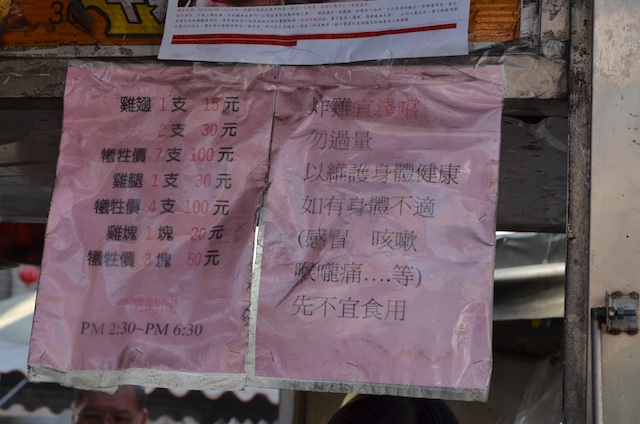 雞翅 1支 15元
2支 30元
犧牲價 7支 100元
雞腿 1支 30元
犧牲價 4支 100元
雞塊 1塊 20元
犧牲價 3塊 50元
營業時間
PM 2:30~PM 6:30
炸雞宜淺嚐
勿過量
以維護身體健康
如有身體不適
(感冒 咳嗽
喉嚨痛....等)
先不宜食用